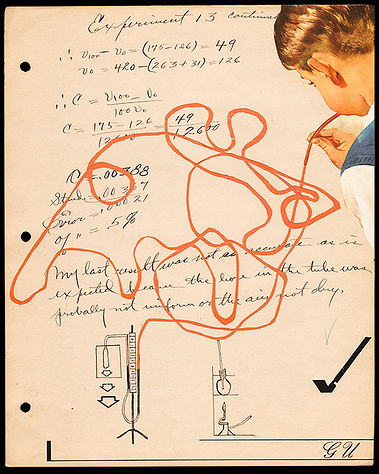 Experiment 13 continued
∴ V100 - V0 = (175-126) = 49
V0 = 420-(263+31) = 126
∴ C = V100 - V0 / 100 V0
C = 175-126 / 12600 = 49 / 12600
C = .00388
.00367
Error = .00021
% " = 5%
My last result was not as accurate as is
expected because the bore in the tube was
probably not uniform or the air not dry.
GU